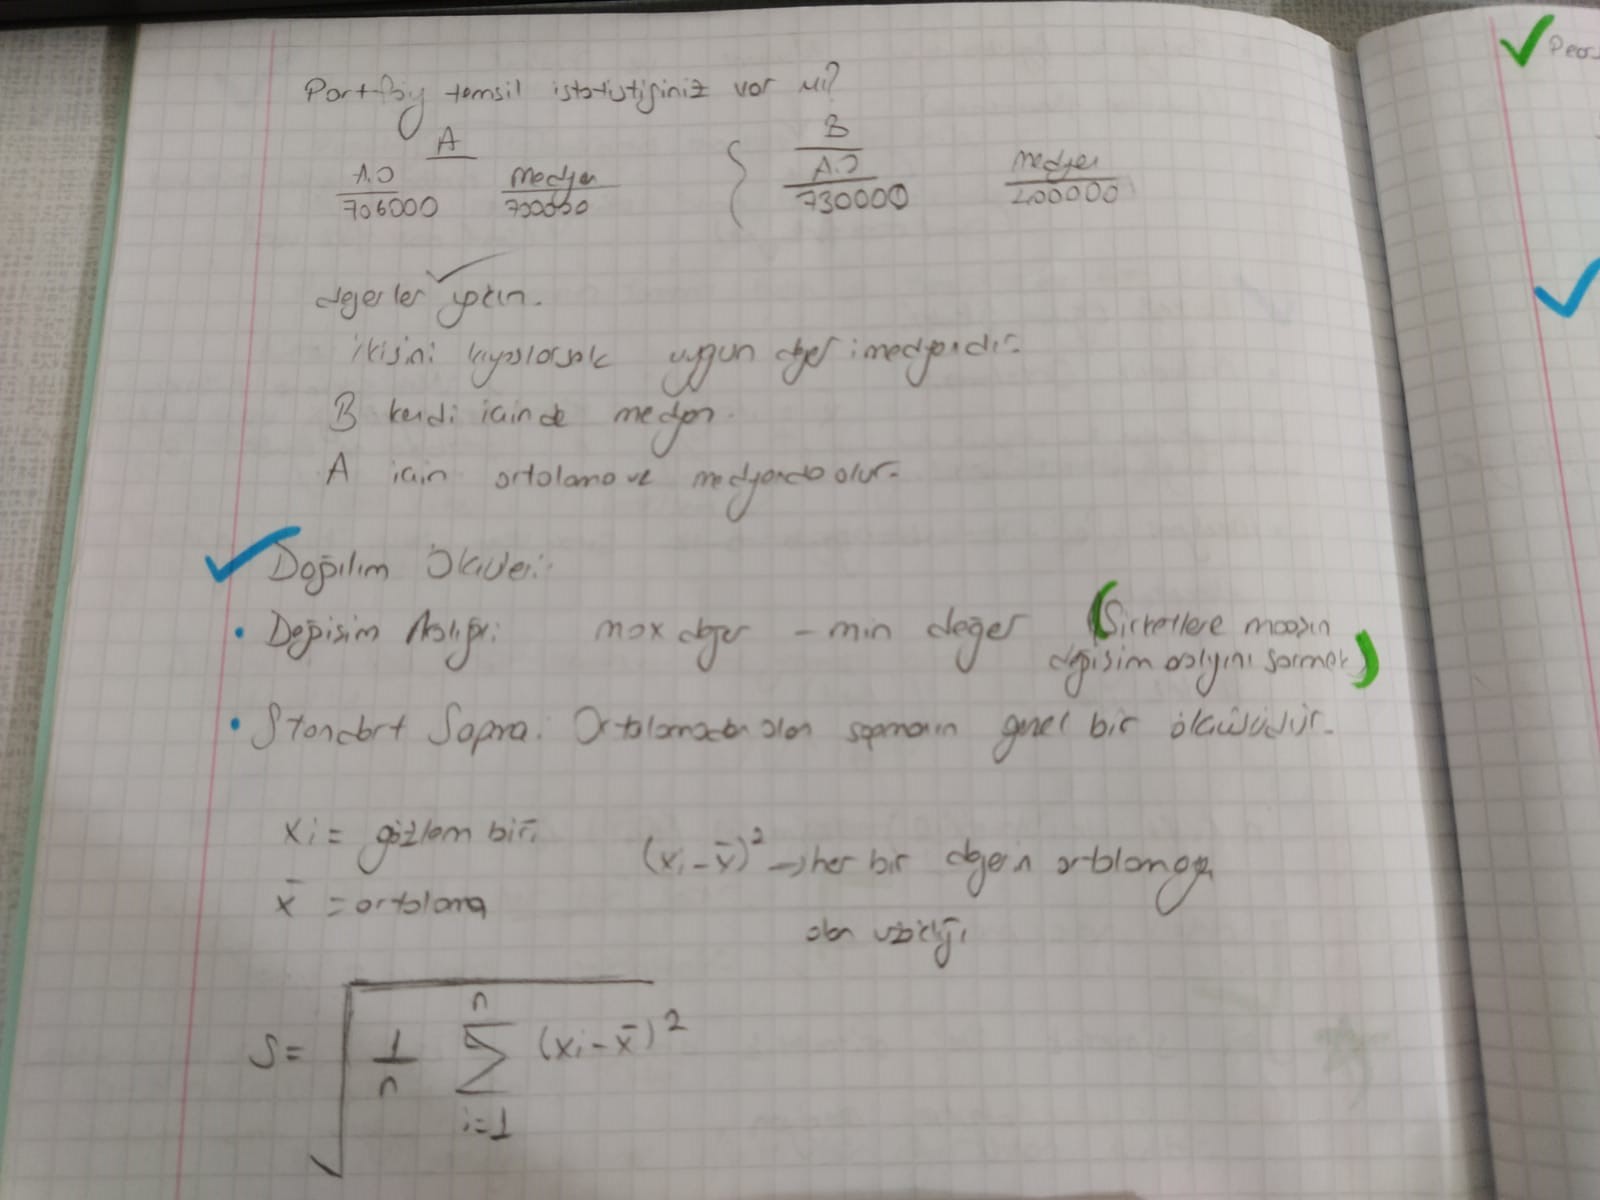 Portföy temsil istatistiğiniz var mı?
A
A.O medyan
706000 700000
B
A.O medyan
730000 400000
değerler yakın.
ikisini kıyaslarsak uygun değer medyandır.
B kendi içinde medyan.
A için ortalama ve medyanda olur.
Dağılım Ölçüleri:
• Değişim Aralığı: max değer - min değer (Şirketlere maaşın
değişim aralığını sormak)
• Standart Sapma: Ortalamadan olan sapmanın genel bir ölçüsüdür.
xi = gözlem biri
(xi - x̄)² → her bir değerin ortalamaya
olan uzaklığı
x̄ = ortalama
S = √ 1/n Σ (xi - x̄)²
n
i=1
Pears